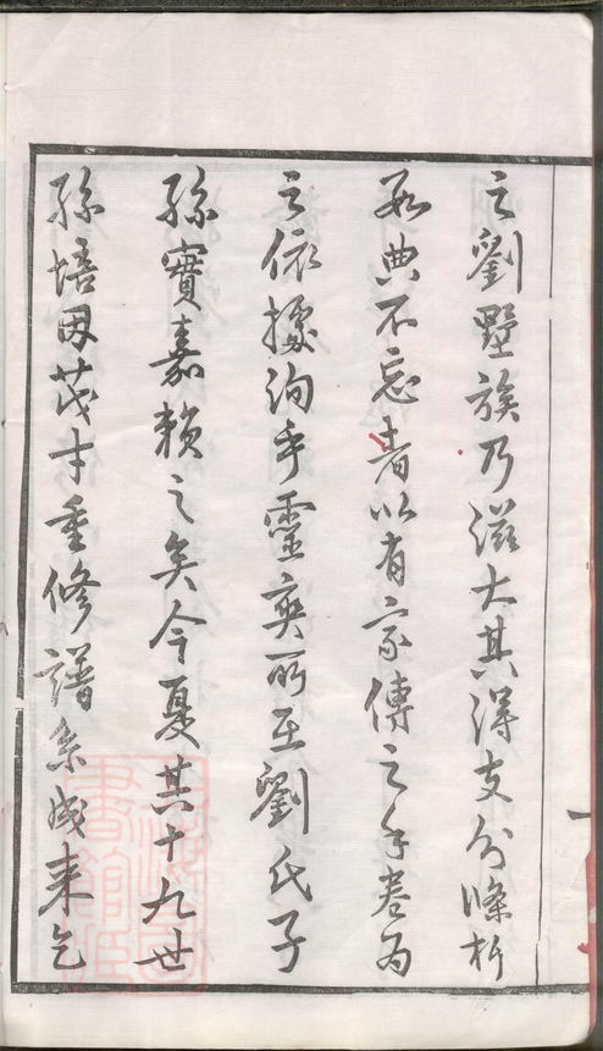 之劉墅族乃滋大其得支分條析
數典不忘者以有家傳之手卷为
之依據洵乎靈爽所至劉氏子
孫實嘉賴之矣今夏其十九世
孫培因茂才重修譜系成来乞